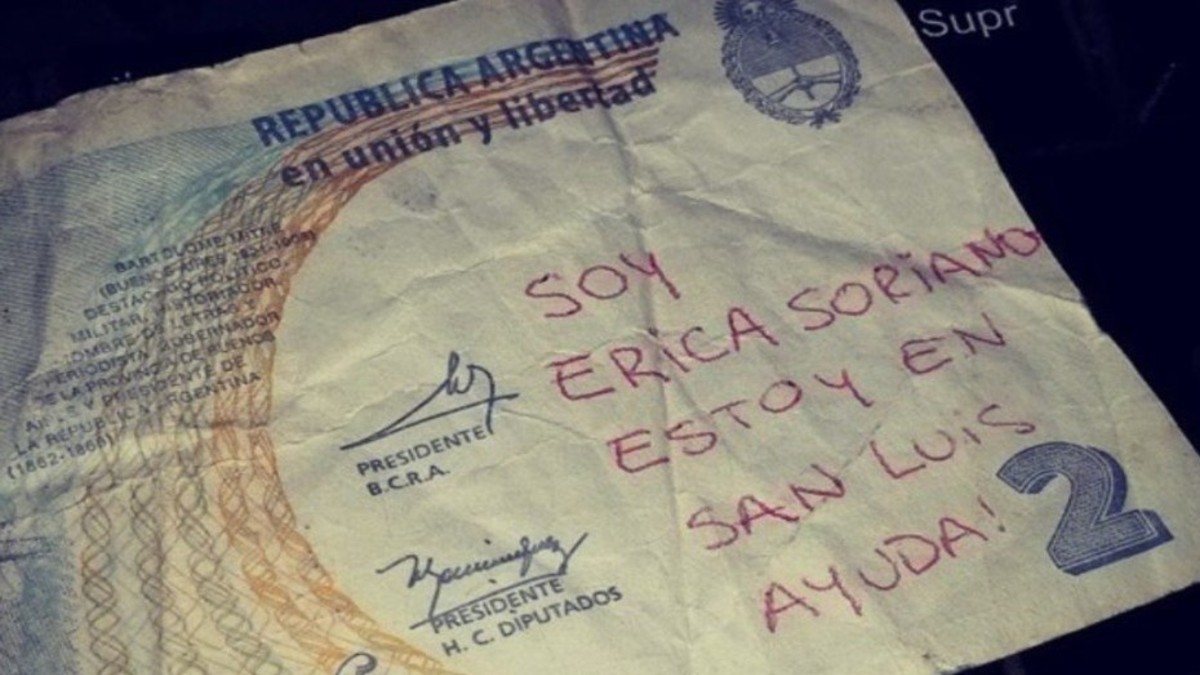 Supr
REPUBLICA ARGENTINA
en unión y libertad
BARTOLOME MITRE
(BUENOS AIRES 1821-1906)
DESTACADO POLITICO,
MILITAR, HISTORIADOR,
HOMBRE DE LETRAS Y
PERIODISTA. GOBERNADOR
DE LA PROVINCIA DE BUENOS
AIRES Y PRESIDENTE DE
LA REPUBLICA ARGENTINA
(1862-1868)
SOY
ERICA SORIANO
ESTOY EN
SAN LUIS
AYUDA!
2
PRESIDENTE
B.C.R.A.
PRESIDENTE
H. C. DIPUTADOS